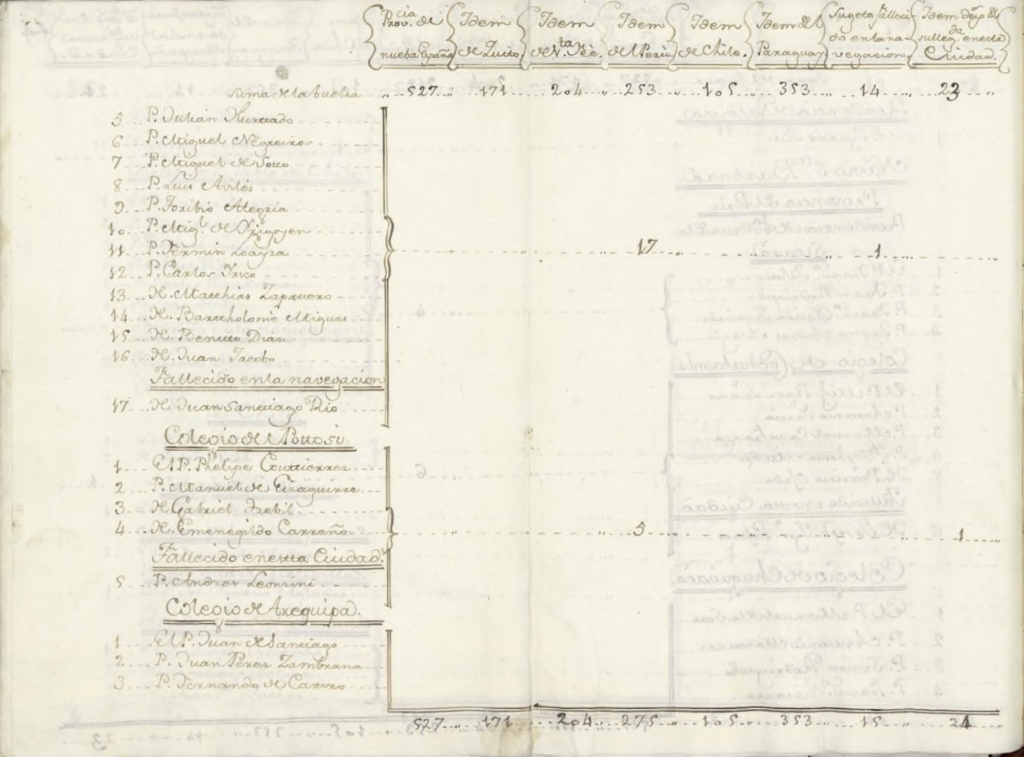 Prov.cia de nueva España
Idem de Quito
Idem de N.ta Fée
Idem del Perú
Idem de Chile
Idem del Paraguay
Sugetos falleci dos en la na vegacion
Idem dẽspẽs de su lleg.da en esta Ciudad
Suma de la buelta .. 527 .. 171 .. 204 .. 253 .. 105 .. 353 .. 14 .. 23 ..
5 .. P. Julian Hurtado
6 .. P. Miguel Negreiro
7 .. P. Miguel de Soto
8 .. P. Luis Avilés
9 .. P. Toribio Alegria
10 .. P. Mig.l de Yrigoyen
11 .. P. Fermin Loayza
12 .. P. Carlos
13 .. H. Matthias Zapatero
14 .. H. Bartholomé Miguas
15 .. H. Benitto Diaz
16 .. H. Juan Jacobo
17 .. 1 ..
Fallecido en la navegacion
17 .. H. Juan Santiago Rio
Colegio de Pottosi
1 .. El P. Phelipe Guttierrez
2 .. P. Manuel de Eizaguirre
3 .. H. Gabriel
4 .. H. Emenegildo Carreño
5 .. 1 ..
Fallecido en estta Ciudad.
5 .. P. Andres Leonini
Colegio de Arequipa.
1 .. El P. Juan de Santiago
2 .. P. Juan Perez Zambrana
3 .. P. Fernando de Carero
527 .. 171 .. 204 .. 275 .. 105 .. 353 .. 15 .. 24